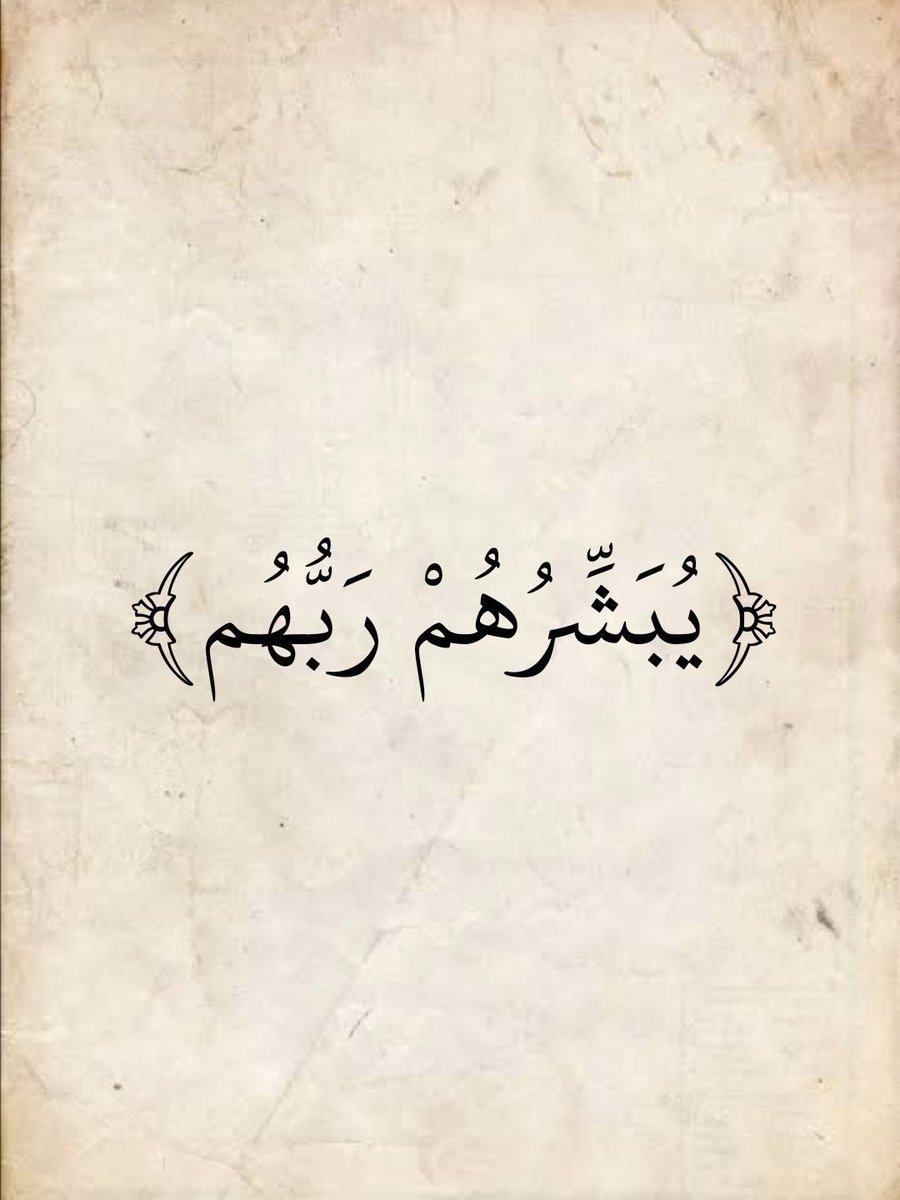 ﴿يُبَشِّرُهُمْ رَبُّهُم﴾